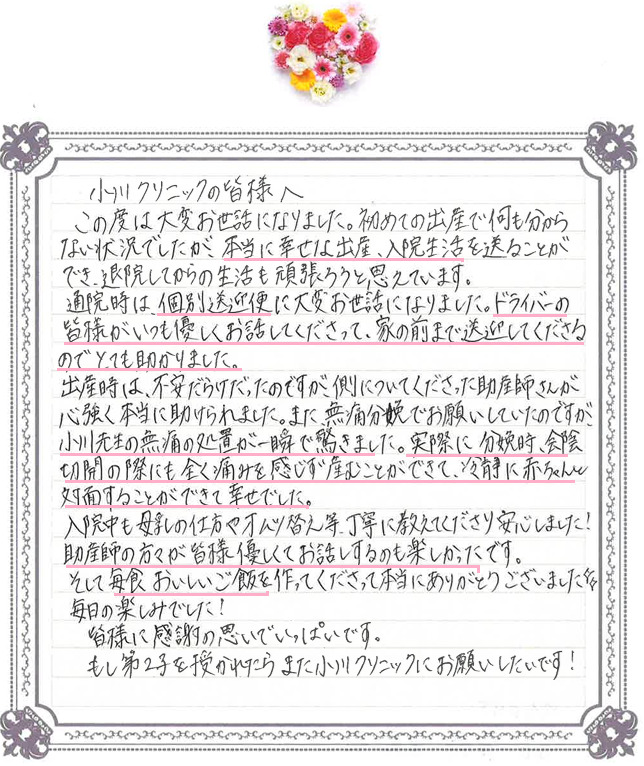 小川クリニックの皆様へ
この度は大変お世話になりました。初めての出産で何も分から
ない状況でしたが、本当に幸せな出産、入院生活を送ることが
でき、退院してからの生活も頑張ろうと思えています。
通院時は、個別送迎便に大変お世話になりました。ドライバーの
皆様がいつも優しくお話してくださって、家の前まで送迎してくださる
のでとても助かりました。
出産時は、不安だらけだったのですが側についてくださった助産師さんが
心強く本当に助けられました。また、無痛分娩でお願いしていたのですが
小川先生の無痛の処置が一瞬で驚きました。実際に分娩時、会陰
切開の際にも全く痛みを感じず産むことができて、冷静に赤ちゃんと
対面することができて幸せでした。
入院中も母乳の仕方やオムツ替え等、丁寧に教えてくださり安心しました!
助産師の方々が皆様優しくてお話しするのも楽しかったです。
そして毎食おいしいご飯を作ってくださって本当にありがとうございました
毎日の楽しみでした!
皆様に感謝の思いでいっぱいです。
もし第2子を授かれたらまた小川クリニックにお願いしたいです!